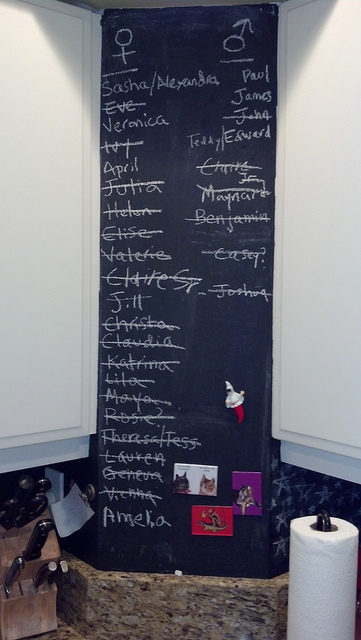 ♀
Sasha/Alexandra
Eve
Veronica
Ivy
April
Julia
Helen
Elise
Valerie
Claire
Jill
Christa
Claudia
Katrina
Lila
Maya
Rosie?
Theresa/Tess
Lauren
Geneva
Vienna
Amelia
♂
Paul
James
John
Teddy/Edward
Maynard
Benjamin
Casey?
Joshua